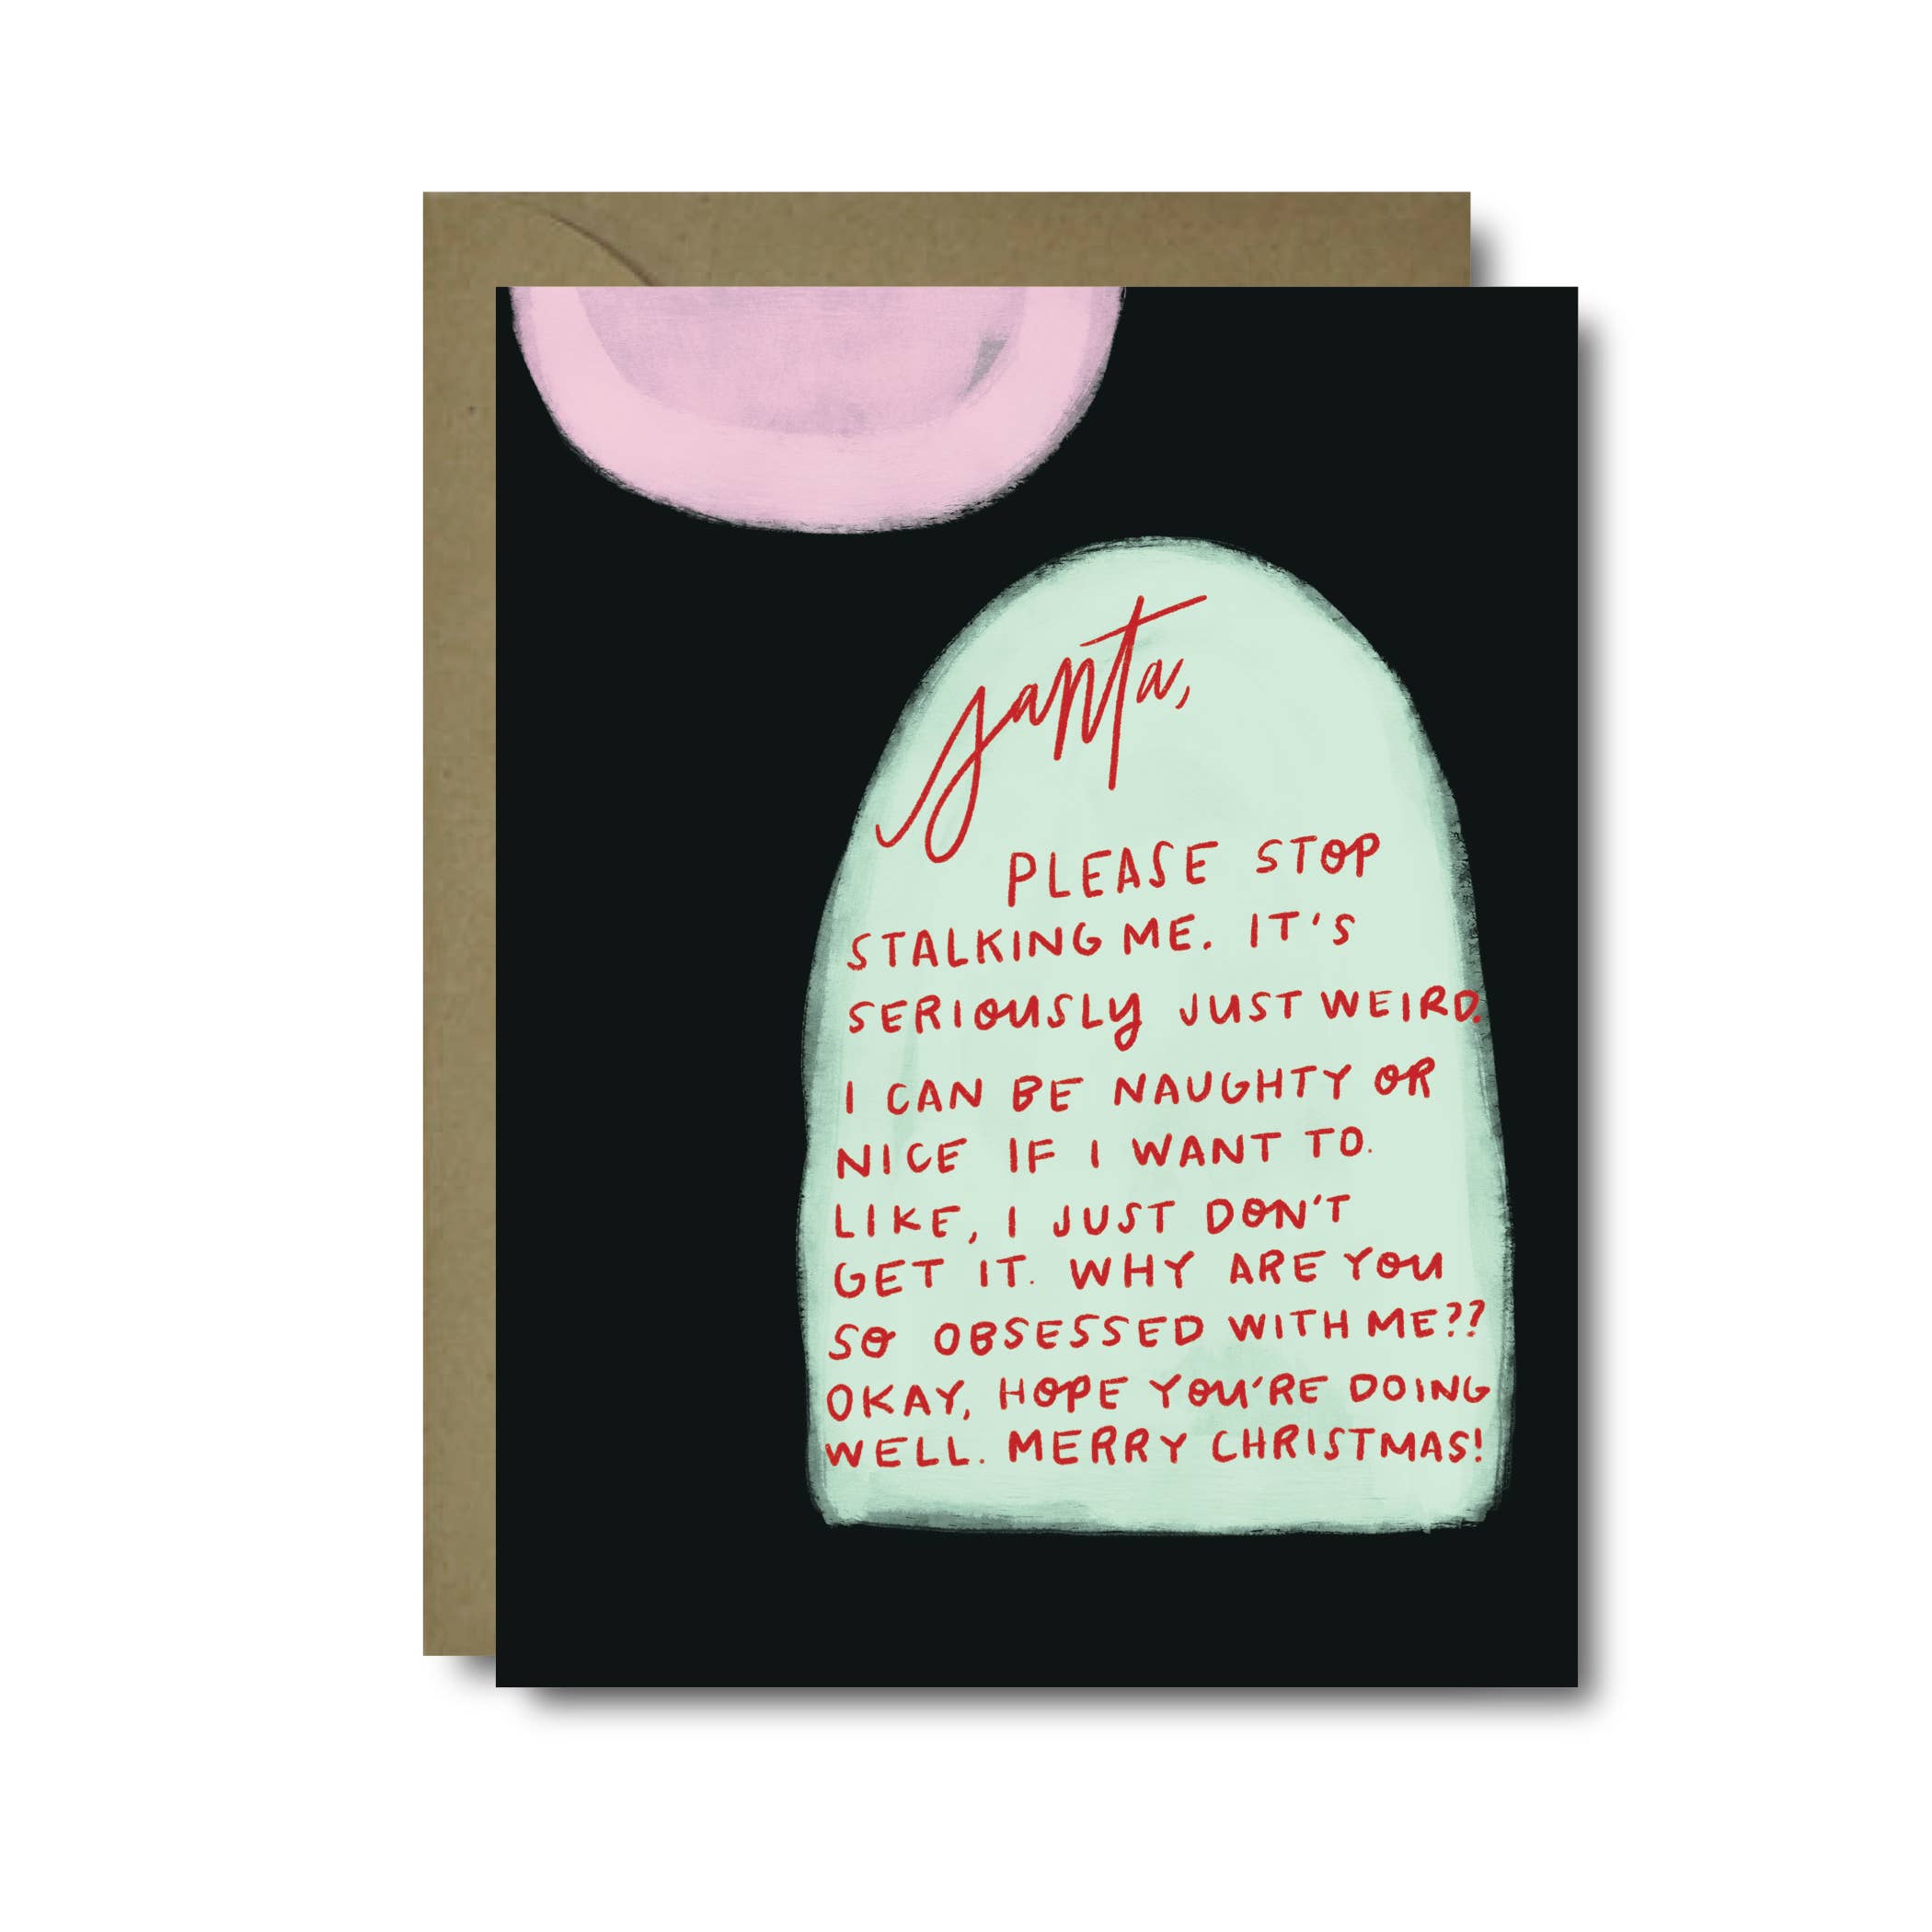 Santa,
PLEASE STOP
STALKING ME. IT'S
SERIOUSLY JUST WEIRD.
I CAN BE NAUGHTY OR
NICE IF I WANT TO.
LIKE, I JUST DON'T
GET IT. WHY ARE YOU
SO OBSESSED WITH ME??
OKAY, HOPE YOU'RE DOING
WELL. MERRY CHRISTMAS!